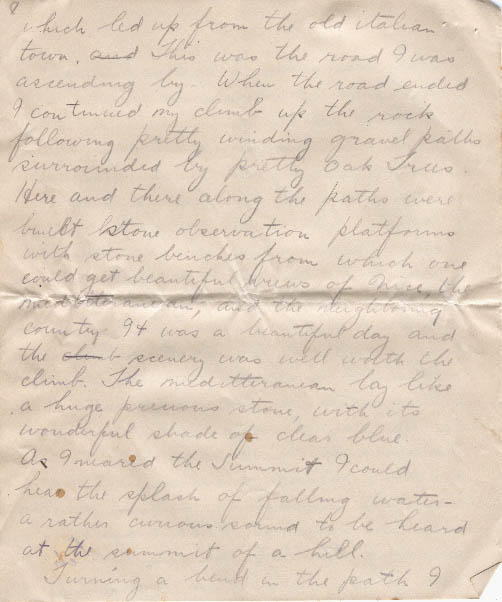 8
which led up from the old italian
town, and This was the road I was
ascending by. When the road ended
I continued my climb up the rock
following pretty winding gravel paths
surrounded by pretty Oak Trees.
Here and there along the paths were
built stone observation platforms
with stone benches from which one
could get beautiful views of Nice, the
mediteranean, and the neighboring
country. It was a beautiful day and
the climb scenery was well worth the
climb. The meditteranean lay like
a huge precious stone, with its
wonderful shade of clear blue.
As I neared the Summit I could
hear the splash of falling water-
a rather curious sound to be heard
at the summit of a hill.
Turning a bend in the path I